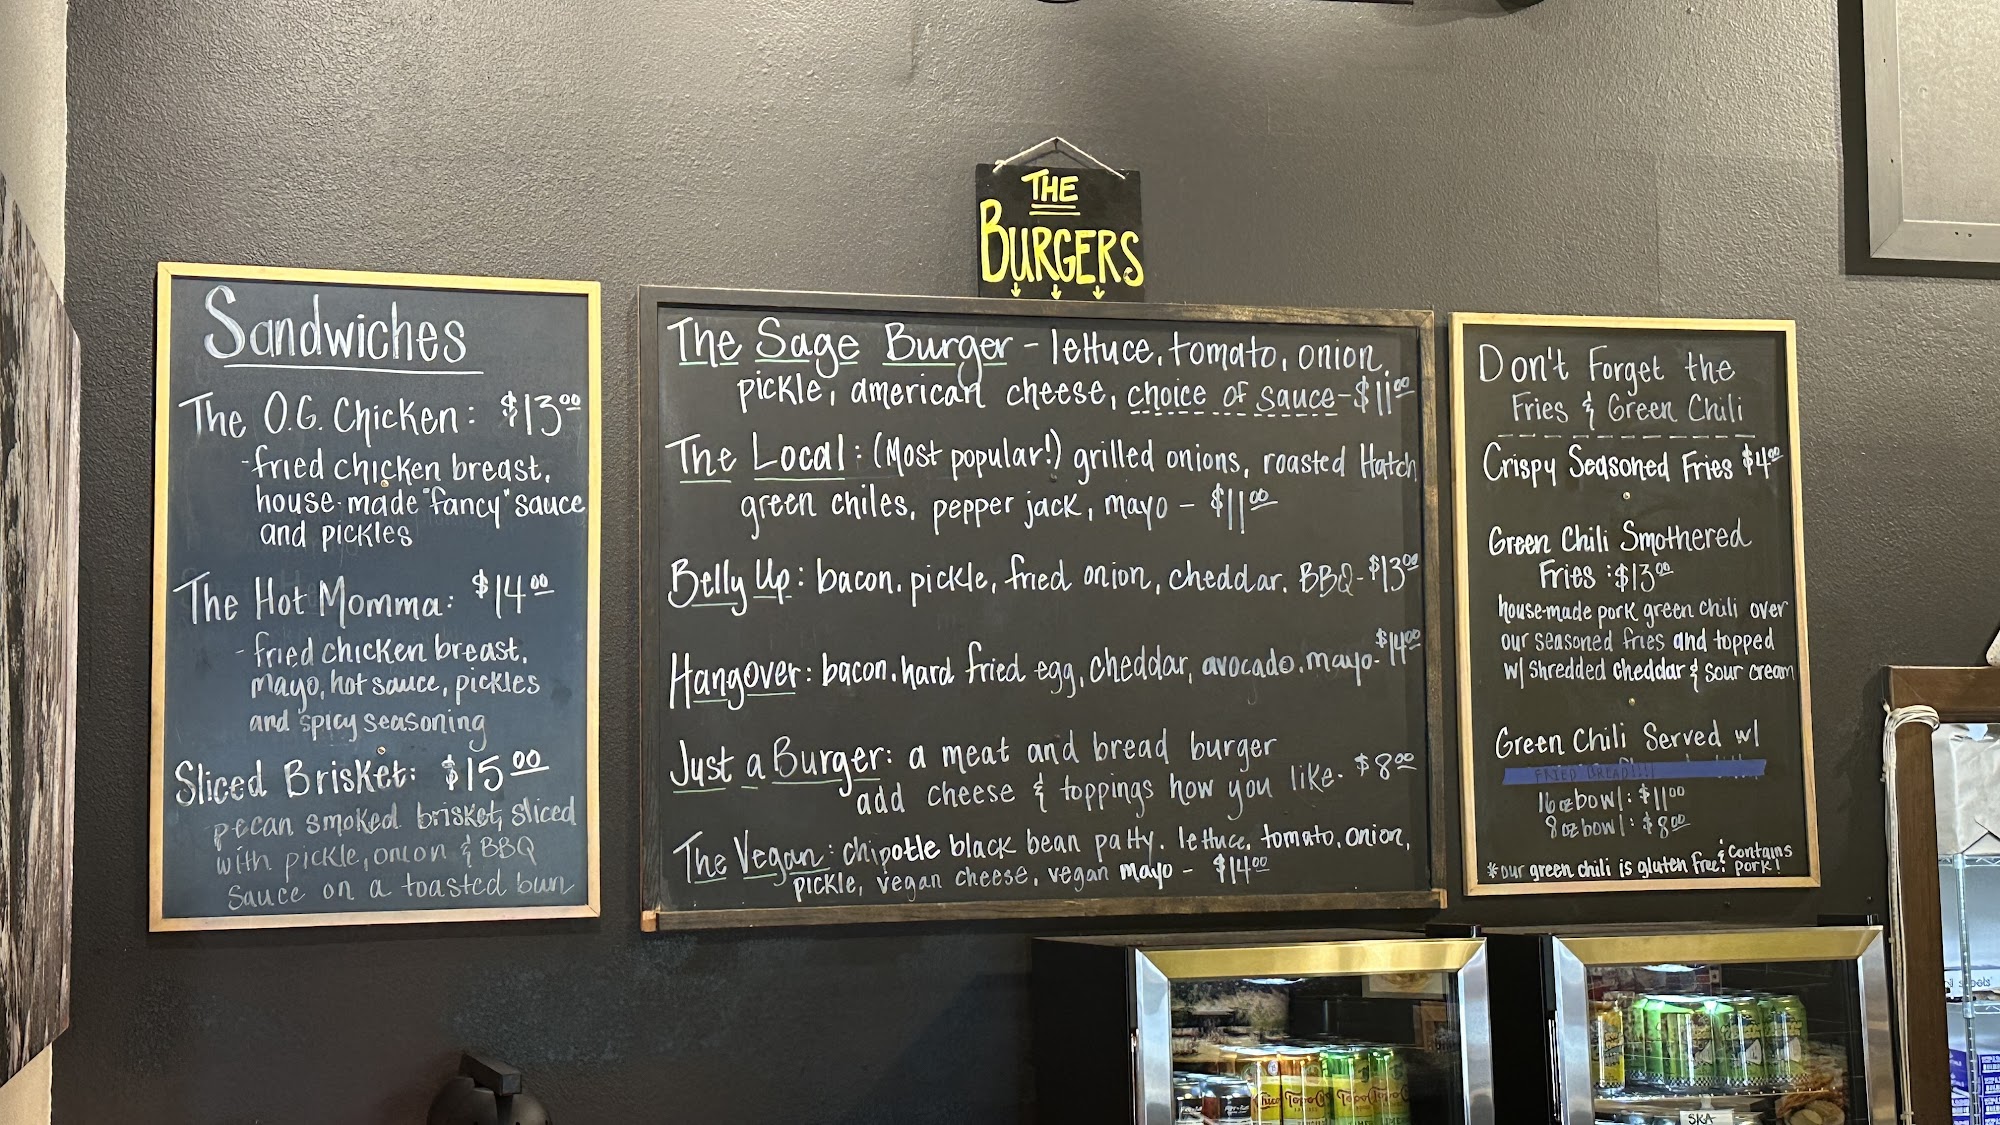 THE
BURGERS
Sandwiches
The O.G. Chicken: $13.00
-fried chicken breast,
house-made "fancy" sauce
and pickles
The Hot Momma: $14.00
-fried chicken breast,
mayo, hot sauce, pickles
and spicy seasoning
Sliced Brisket: $15.00
pecan smoked brisket, sliced
with pickle, onion & BBQ
sauce on a toasted bun
The Sage Burger - lettuce, tomato, onion,
pickle, american cheese, choice of sauce-$11.00
The Local: (Most popular!) grilled onions, roasted Hatch
green chiles, pepper jack, mayo - $11.00
Belly Up: bacon, pickle, fried onion, cheddar, BBQ-$13.00
Hangover: bacon, hard fried egg, cheddar, avocado, mayo-$14.00
Just a Burger: a meat and bread burger
add cheese & toppings how you like- $8.00
The Vegan: chipotle black bean patty, lettuce, tomato, onion,
pickle, vegan cheese, vegan mayo - $14.00
Don't Forget the
Fries & Green Chili
Crispy Seasoned Fries $4.00
Green Chili Smothered
Fries: $13.00
house-made pork green chili over
our seasoned fries and topped
w/ shredded cheddar & sour cream
Green Chili Served w/
FRIED BREAD!!!!
16oz bowl: $11.00
8oz bowl: $8.00
*our green chili is gluten free & contains
pork!
Topo Chico
SKA